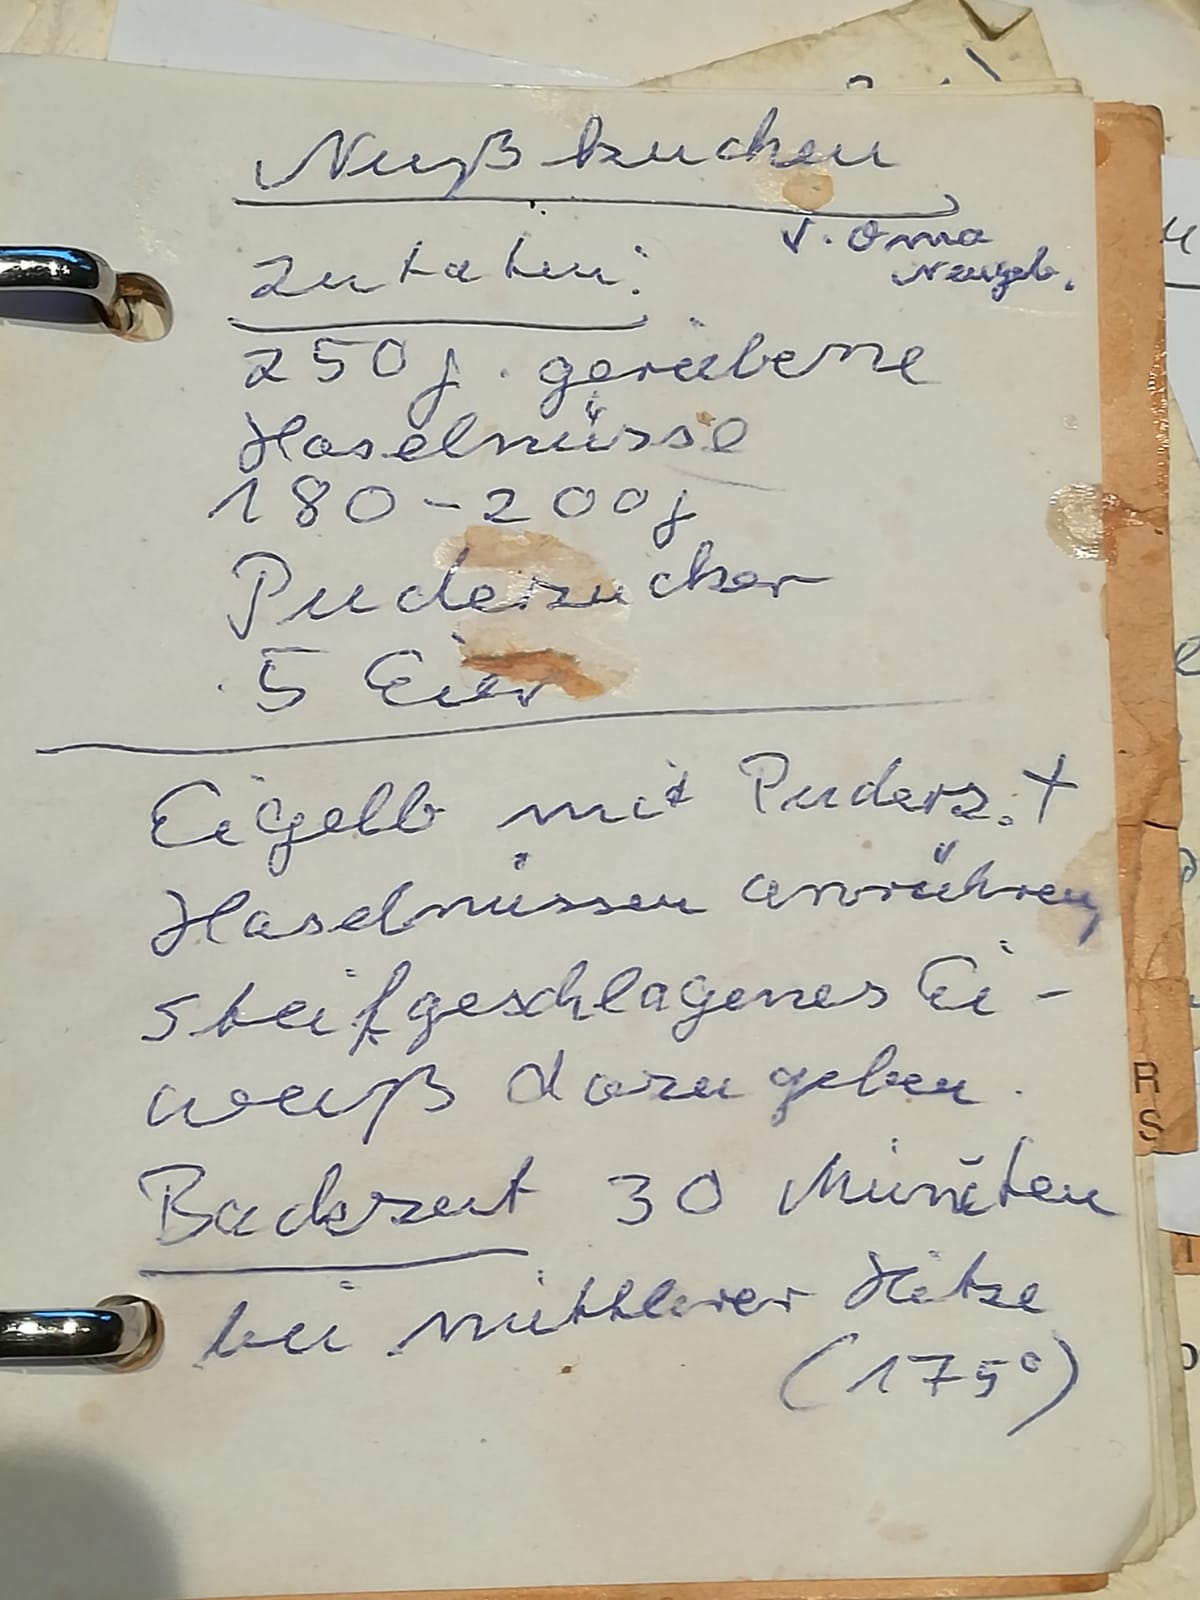 Nußkuchen
v. Oma
Neugeb.
Zutaten:
250 g. geriebene
Haselnüsse
180-200 g
Puderzucker
5 Eier
Eigelb mit Puderz. +
Haselnüssen anrühren,
steifgeschlagenes Ei-
weiß dazu geben.
Backzeit 30 Minuten
bei mittlerer Hitze
(175°)
R
S